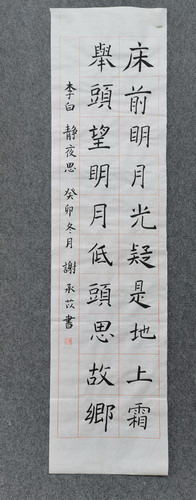 床前明月光疑是地上霜
舉頭望明月低頭思故鄉
李白 靜夜思 癸卯冬月 謝承苡書